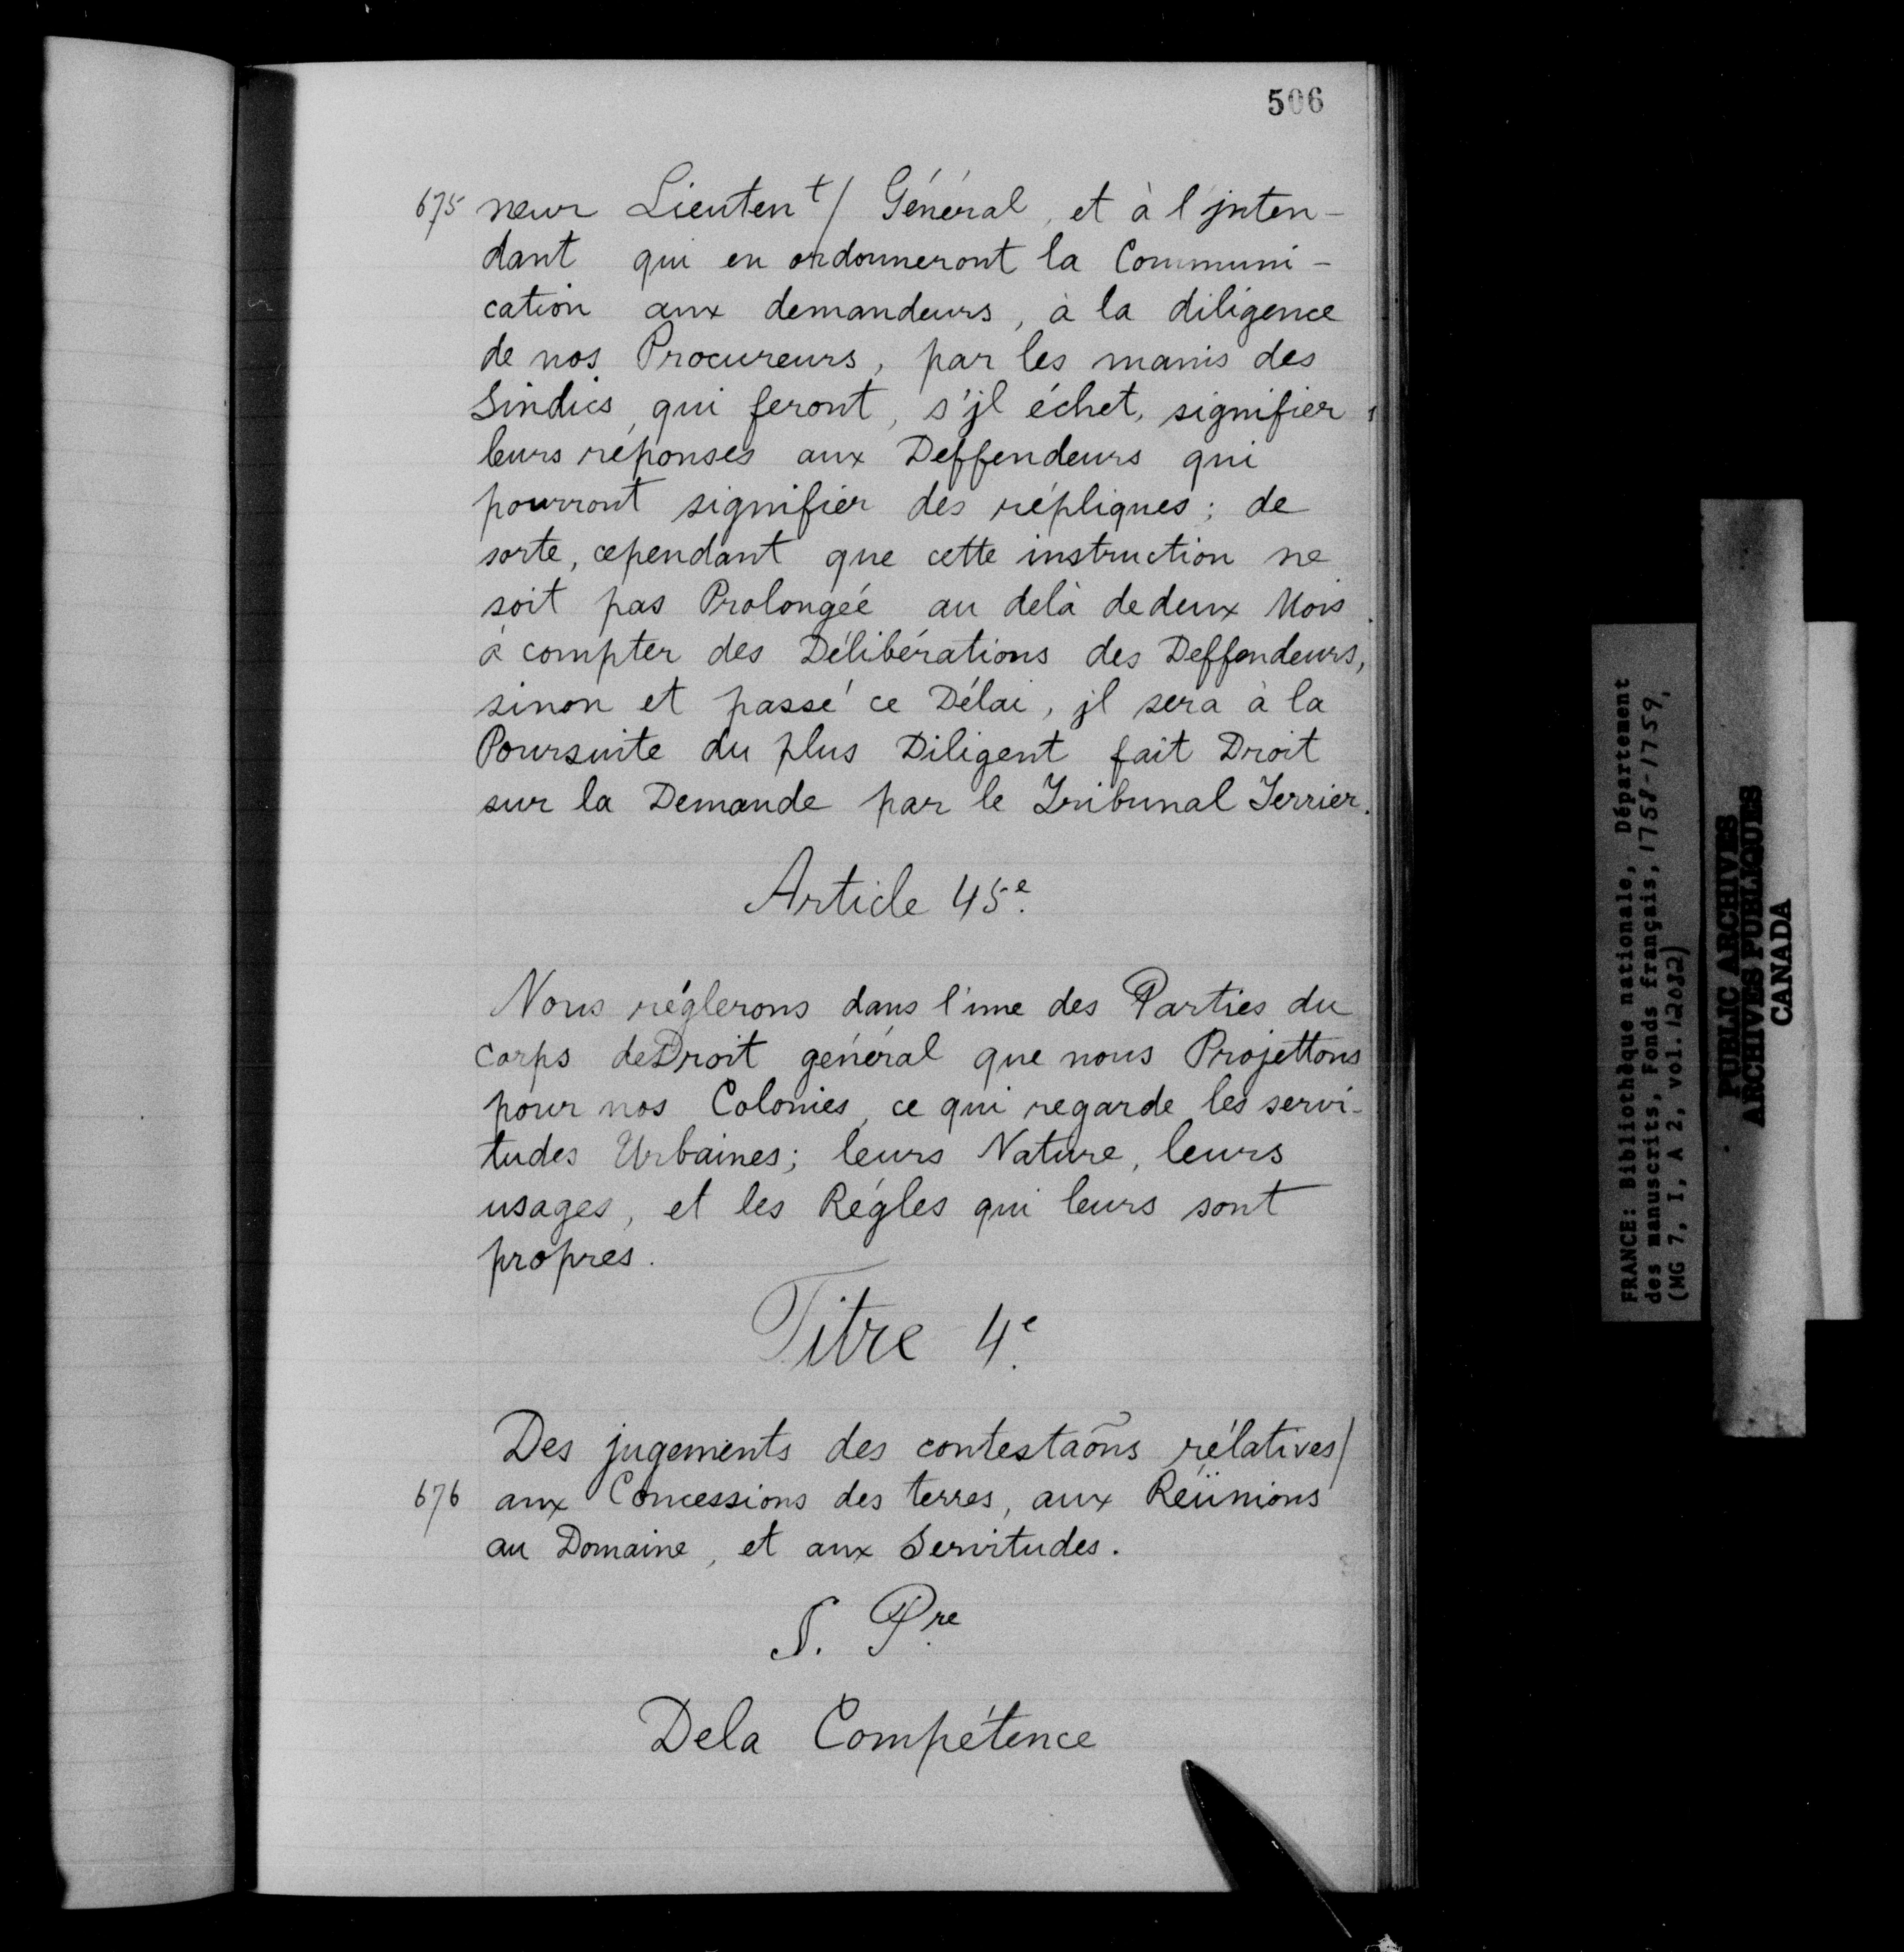 506
675 neur Lieuten^t/ Général, et à l'jnten-
dant qui en ordonneront la Communi-
cation aux demandeurs, à la diligence
de nos Procureurs, par les mains des
Sindics, qui feront, s'jl échet, signifier
leurs réponses aux Deffendeurs qui
pourront signifier des répliques; de
sorte, cependant que cette instruction ne
soit pas Prolongée au delà dedeux Mois
à compter des Délibérations des Deffendeurs,
sinon et passé ce Délai, jl sera à la
Poursuite du plus Diligent fait Droit
sur la Demande par le Tribunal Terrier.
Article 45e.
Nous réglerons dans l'une des Parties du
Corps deDroit général que nous Projettons
pour nos Colonies, ce qui regarde les servi-
tudes Urbaines; leurs Nature, leurs
usages, et les Régles qui leurs sont
propres.
Titre 4e.
Des jugements des contestaõns rélatives/
676 aux Concessions des terres, aux Réünions
au Domaine, et aux Servitudes.
§. Pre
Dela Compétence
FRANCE: Bibliothèque nationale, Département
des manuscrits, Fonds français, 1758-1759,
(MG 7, I, A 2, vol. 12032)
PUBLIC ARCHIVES
ARCHIVES PUBLIQUES
CANADA